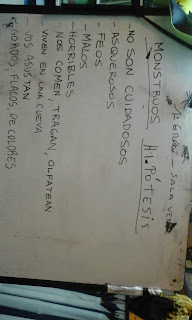 SALA VERDE
MONSTRUOS HIPÓTESIS
- NO SON CUIDADOSOS
- ASQUEROSOS
- FEOS
- MALOS
- HORRIBLES
- NOS COMEN, TRAGAN, OLFATEAN
- VIVEN EN UNA CUEVA
- NOS ASUSTAN
- GORDOS, FLACOS, DE COLORES